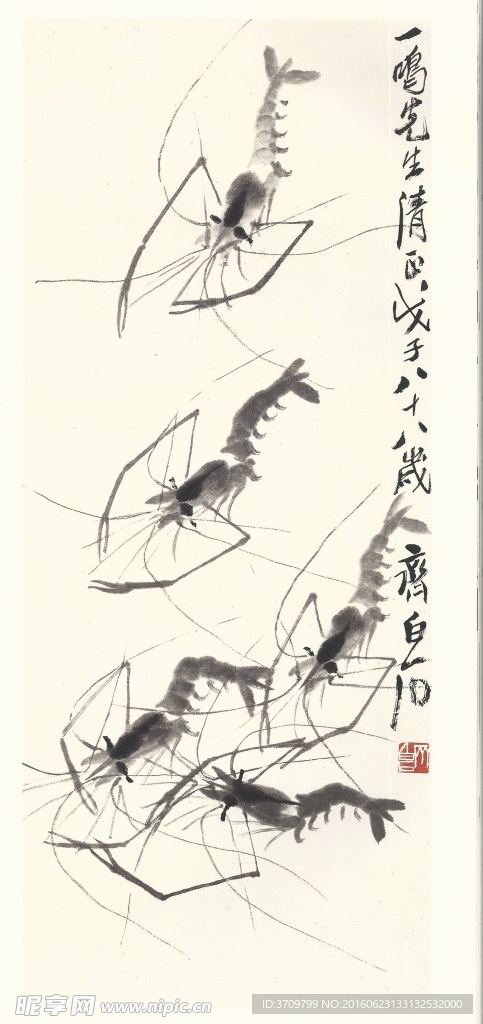 一鳴先生清正戊子八十八歲 齊白石
昵享网 www.nipic.cn
ID:3709799 NO:20160623133132532000